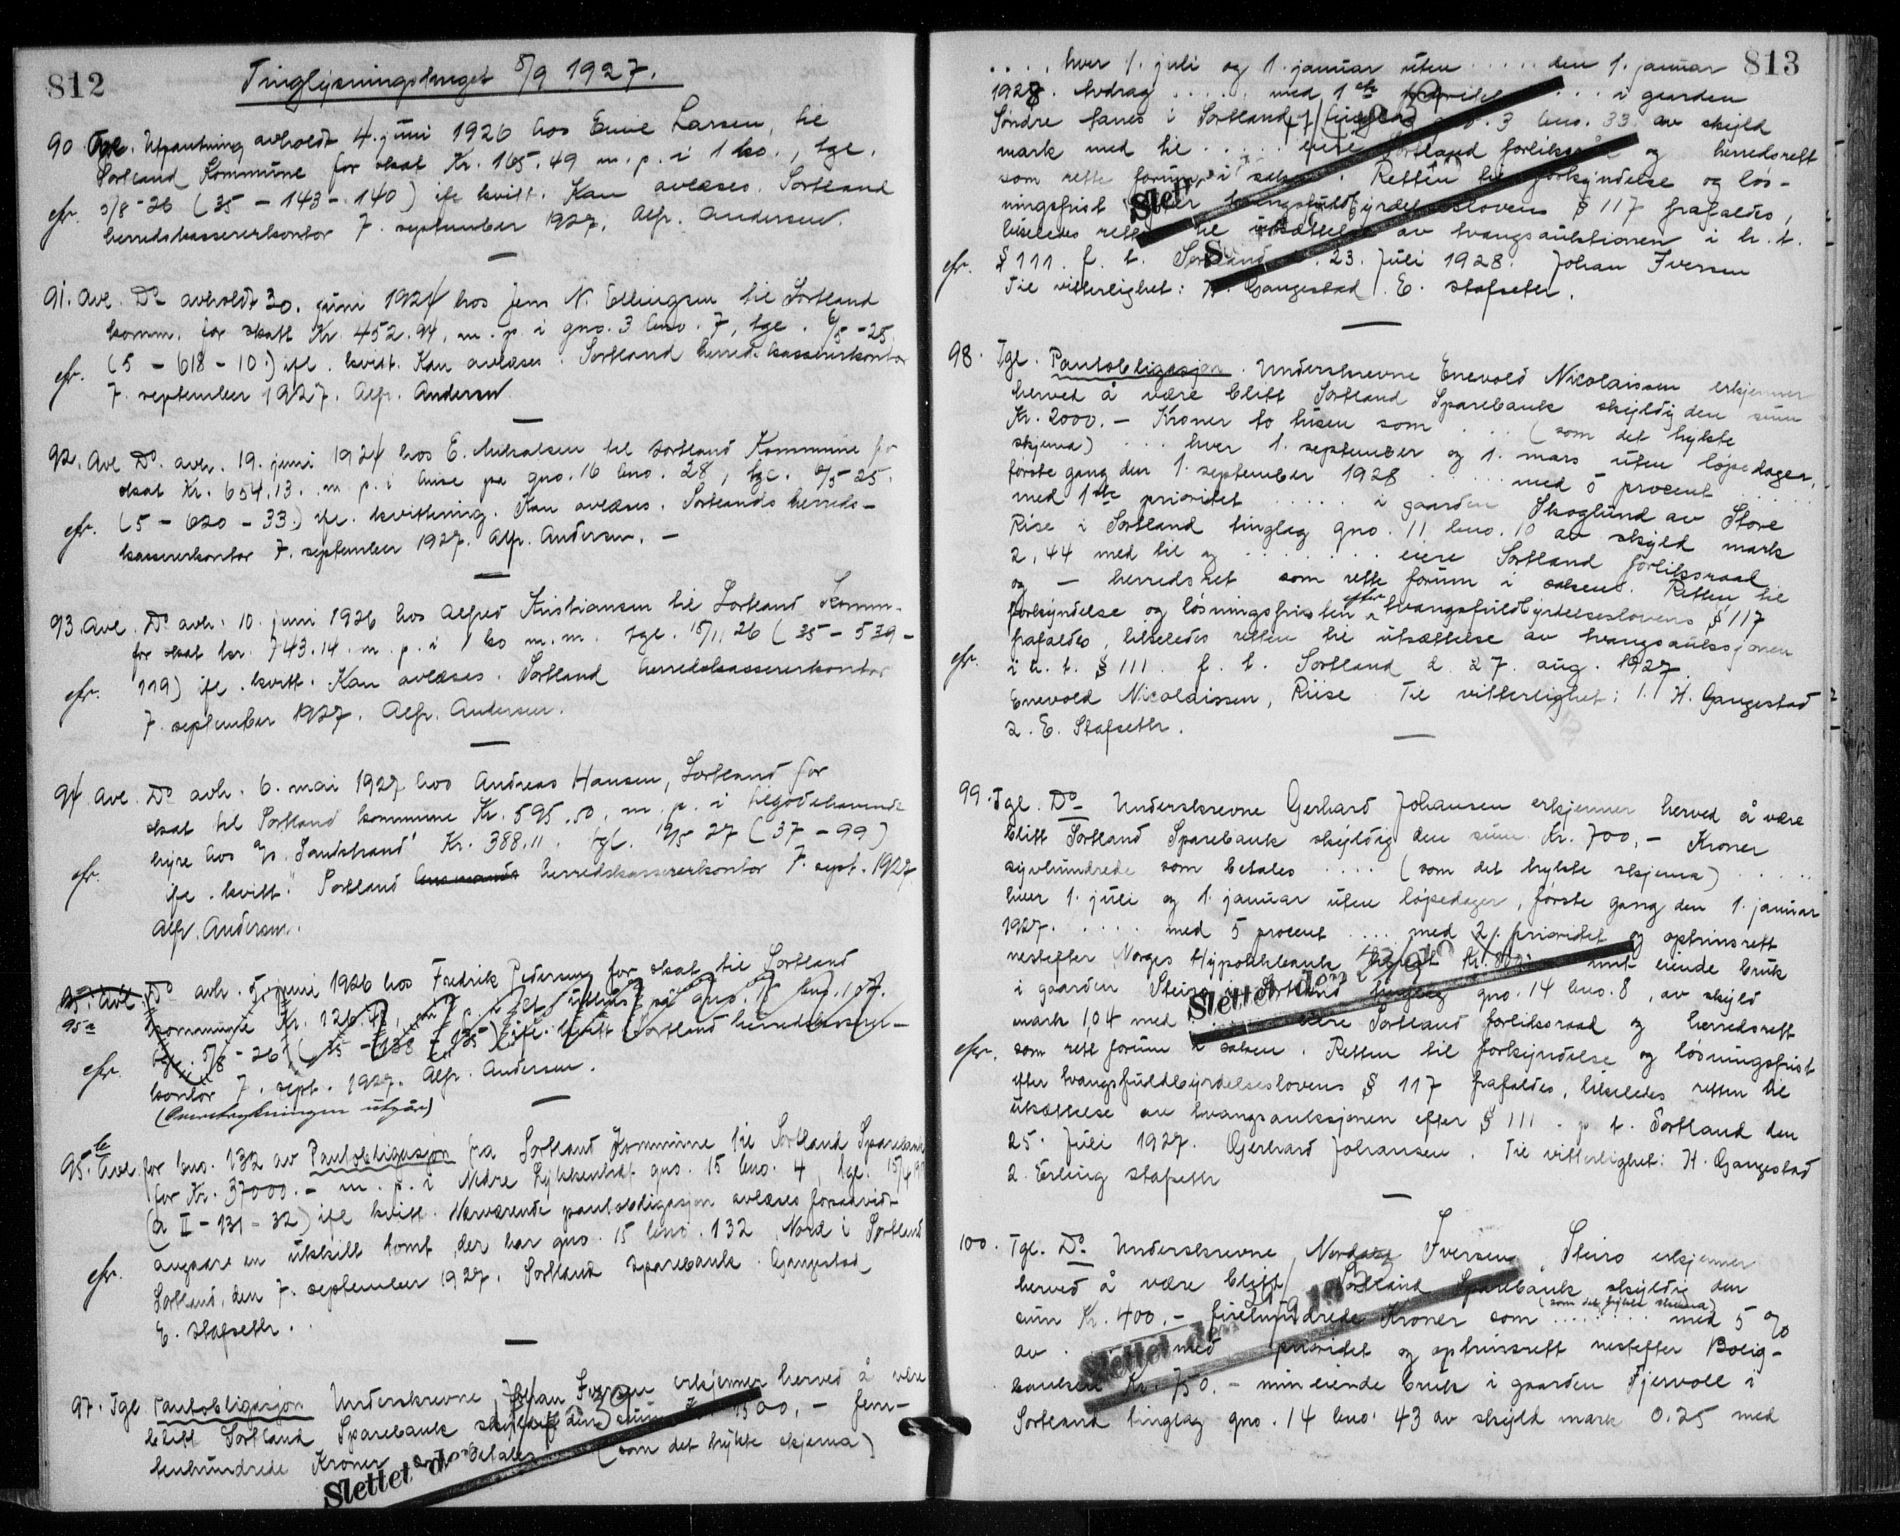 812
Tinglysningslaget 8/9 1927.
90. Utpantning avholdt 4. juni 1926 hos Emil Larsen, til
Sortland Kommune for skat Kr. 165.49 m. p. i 1 ko., tgl.
cfr. 3/8-26 (35 - 143 - 140) ifl. kvitt. Kan avlæses. Sortland
herredskassererkontor 7. september 1927. Alfr. Andersen.
91. Avl. Do avholdt 30. juni 1924 hos Jens N. Ellingsen til Sortland
komm. for skatt Kr. 452.94. m. p. i gno. 3 bno. 7, tgl. 6/5-25
cfr. (5 - 618 - 10.) ifl. kvitt. Kan avlæses. Sortland herredskassererkontor
7. september 1927. Alfr. Andersen
92. Avl Do. avh. 19. juni 1924 hos E. til Sortland Kommune for
skat Kr. 654.13. m. p. i huse pa gno. 16 bno. 28, tgl. 6/5-25.
cfr. (5 - 620 - 33.) ifl. kvittering. Kan avlæses. Sortlands herreds-
kassererkontor 7. september 1927. Alfr. Andersen. -
93. Avl. Do avh. 10. juni 1926 hos Alfred Kristiansen til Sortland Komm.
for skat kr. 743.14. m. p. i 1 ko m. m. tgl. 26 (35 - 539 -
cfr. 119) ifl. kvitt. Kan avlæses. Sortland herredskassererkontor
7. september 1927. Alfr. Andersen.
94. Avl. Do avh. 6. mai 1927 hos Andreas Hansen, Sortland for
skat til Sortland kommune Kr. 595.50. m. p. i tilgodehavende
hyre hos "Sandstrand" Kr. 388.11. tgl. 27 (37 - 99)
cfr. ifl. kvitt. Sortland herredskassererkontor 7. sept. 1927
Alfr. Andersen.
Do avh. 5. juni 1926 hos Fredrik Pedersen for skat til Sortland
95a kommune Kr. m. p. i på gno. bno. 107.
tgl. 5/8-26 (35 - 138 - 135) ifl. kvitt Sortland herredskasserer-
cfr. kontor 7. sept. 1927. Alfr. Andersen.
(Overstrykningen utgår)
95.b Avl. for bno. 132 av Pantobligasjon fra Sortland Kommune til Sortland Sparebank
for Kr. 37000.- m. p. i Nedre gno. 15 bno. 4 tgl.
(a II - 131 - 32) ifl kvitt. Nærværende pantobligasjon avlæses forsaavidt
cfr. angaar en utskilt tomt der har gno. 15 bno. 132 Nord i Sortland
Sortland, den 7. september 1927. Sortland Sparebank. Gangestad
E. Stafseth.
97. Tgl Pantobligasjon Underskrevne Johan Iversen erkjenner herved å være
blitt Sortland Sparebank skyldig den sum Kr. 1500.- fem-
tenhundrede Kroner som betales (som det trykte skjema)
Slettet den
813
.... hver 1. juli og 1. januar uten ..... den 1. januar
1928. Avdrag ..... med 1ste prioritet .... i gaarden
Søndre Janes i Sortland tinglag gno. 3 bno. 33 av skyld
mark med til ..... eiere Sortland forliksraad og herredsrett
som rette forum i saken. Retten til forkyndelse og løs-
ningsfrist efter tvangsfuldbyrdelseslovens § 117 frafaldes,
likeledes retten til utsættelse av tvangsauktionen i h. t.
cfr. § 111. f. t. Sortland 23. Juli 1928. Johan Iversen
Til vitterlighet: H. Gangestad. E. Stafseth.
98. Tgl. Pantobligasjon. Underskrevne Enevold Nicolaissen erkjenner
herved å være blitt Sortland Sparebank skyldig den sum
Kr. 2000.- Kroner to tusen som ... (som det trykte
skjema) ... hver 1. september og 1. mars uten løpedager,
første gang den 1. september 1928 ..... med 5 procent ...
med 1ste prioritet ...... i gaarden Skoglund av Store
Riise i Sortland tinglag gno. 11 bno. 10 av skyld mark
2,44 med til og ........ eiere Sortland forliksraad
og - herredsret som rette forum i saken. Retten til
forkyndelse og løsningsfristen efter tvangsfuldbyrdelseslovens § 117
frafaldes, likeledes retten til utsættelse av tvangsauksjonen
cfr. i h. t. § 111 f. t. Sortland d. 27. aug. 1927.
Enevold Nicolaissen, Riise. Til vitterlighet: 1. H. Gangestad
2. E. Stafseth.
99. Tgl. Do Underskrevne Gerhard Johansen erkjenner herved å være
blitt Sortland Sparebank skyldig den sum Kr. 700.- Kroner
syvhundrede som betales .... (som det trykte skjema) .....
hver 1. juli og 1. januar uten løpedager, første gang den 1. januar
1927. .... med 5 procent .... med 2. prioritet og optrinsrett
nestefter Norges Hypotekbank mit eiende bruk
i gaarden Steiro i Sortland tinglag gno. 14 bno. 8, av skyld
mark 1,04 med eiere Sortland forliksraad og herredsrett
cfr. som rett forum i saken. Retten til forkyndelse og løsningsfrist
efter tvangsfuldbyrdelseslovens § 117 frafaldes, likeledes retten til
utsættelse av tvangsauksjonen efter § 111. p. t. Sortland den
25. Juli 1927. Gerhard Johansen. Til vitterlighet: H. Gangestad
2. Erling Stafseth
Slettet den
100. Tgl. Do. Underskrevne Iversen Steiro erkjenner
herved å være blitt Sortland Sparebank skyldig den
sum Kr. 400.- firehundrede Kroner som (som det trykte skjema) ........ med 5 %
av . med prioritet og optrinsrett nestefter Bolig-
banken Kr. 750.- min eiende bruk i gaarden Fjervoll i
Sortland tinglag gno. 14 bno. 43 av skyld mark 0.25 med
Slettet den